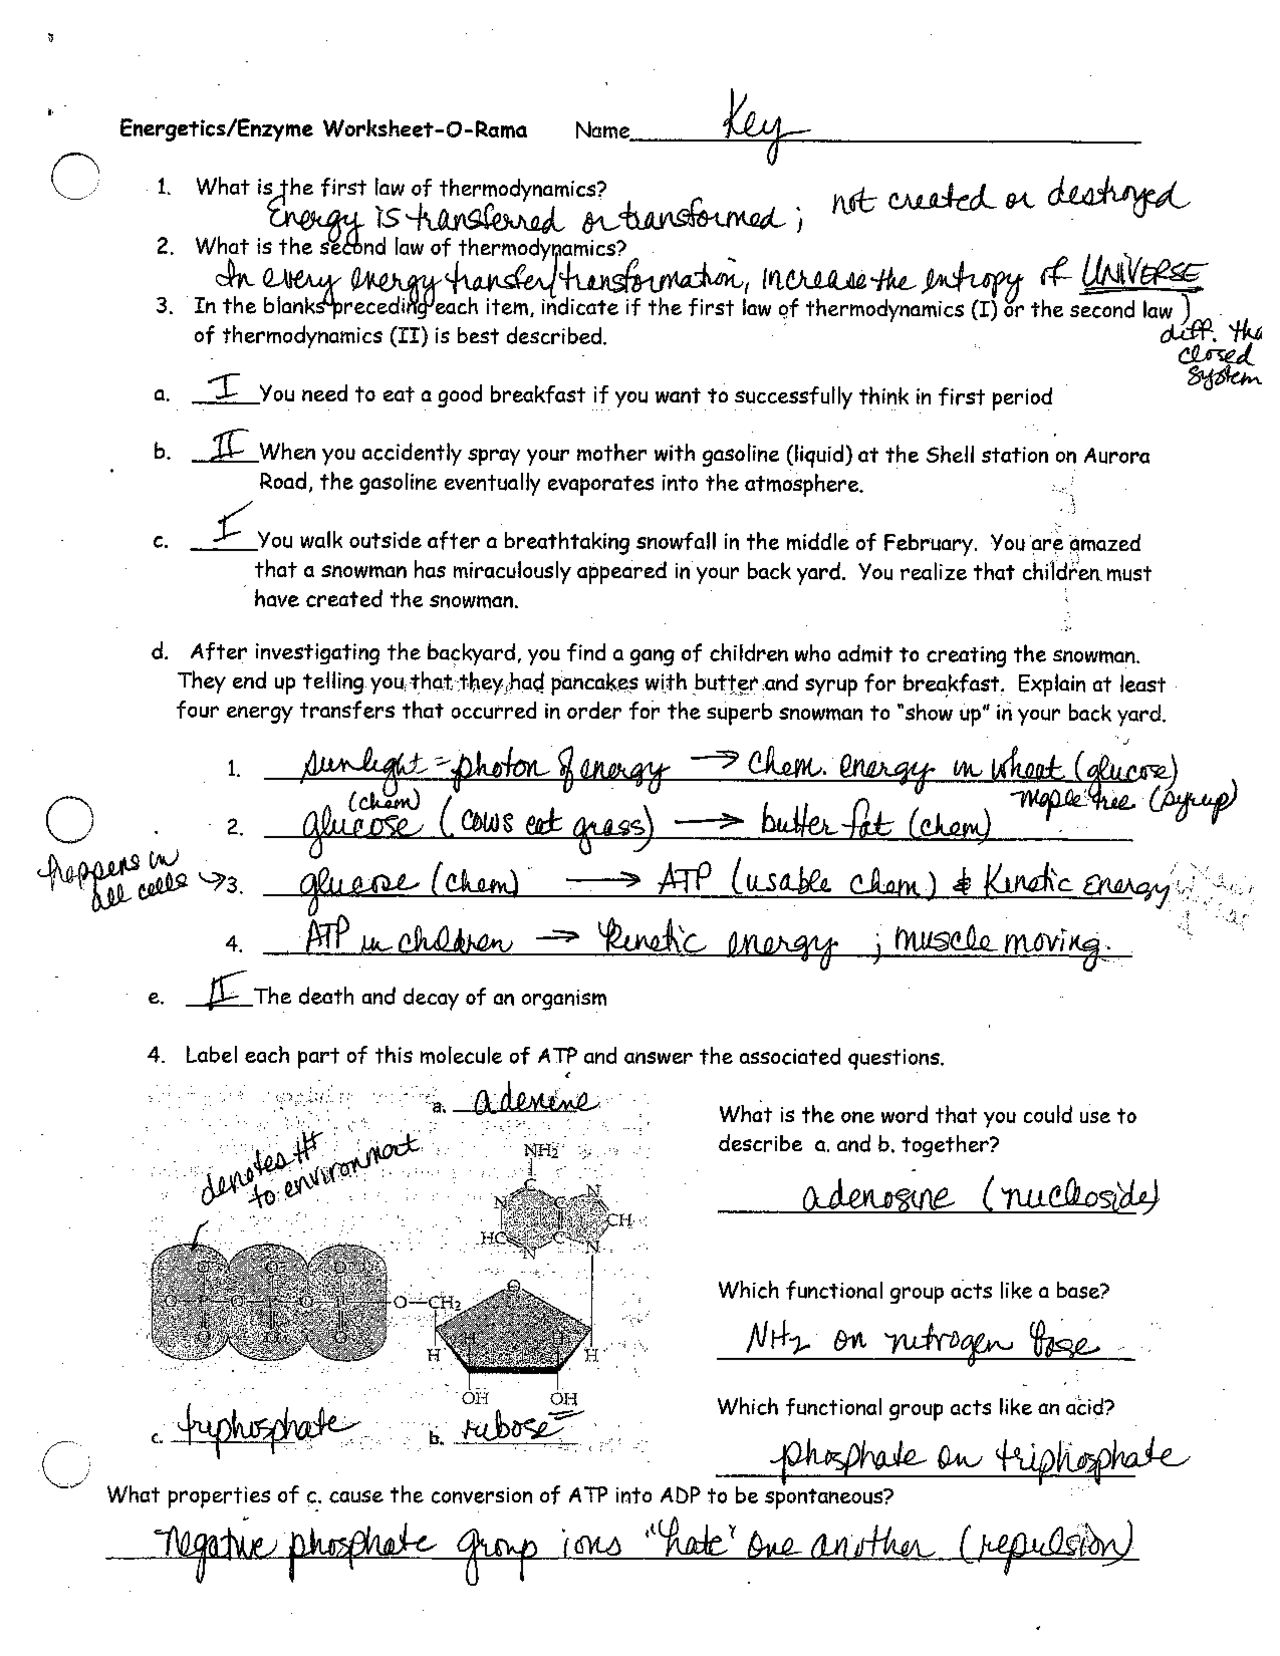 Energetics/Enzyme Worksheet-O-Rama Name Key
1. What is the first law of thermodynamics?
Energy is transferred or transformed; not created or destroyed
2. What is the second law of thermodynamics?
In every energy transfer/transformation, increase the entropy of UNIVERSE
3. In the blanks preceding each item, indicate if the first law of thermodynamics (I) or the second law
of thermodynamics (II) is best described.
diff. tha
closed
system
a. I You need to eat a good breakfast if you want to successfully think in first period
b. II When you accidently spray your mother with gasoline (liquid) at the Shell station on Aurora
Road, the gasoline eventually evaporates into the atmosphere.
c. I You walk outside after a breathtaking snowfall in the middle of February. You are amazed
that a snowman has miraculously appeared in your back yard. You realize that children must
have created the snowman.
d. After investigating the backyard, you find a gang of children who admit to creating the snowman.
They end up telling you that they had pancakes with butter and syrup for breakfast. Explain at least
four energy transfers that occurred in order for the superb snowman to "show up" in your back yard.
1. sunlight = photon of energy → chem. energy in wheat (glucose)
maple tree (syrup)
(chem)
2. glucose (cows eat grass) → butter fat (chem)
happens in
all cells → 3. glucose (chem) → ATP (usable chem) & Kinetic energy
4. ATP in children → kinetic energy ; muscle moving.
e. II The death and decay of an organism
4. Label each part of this molecule of ATP and answer the associated questions.
a. adenine
What is the one word that you could use to
describe a. and b. together?
adenosine (nucleoside)
denotes H+
to environment
NH2
C
N
C
N
CH
HC
N
C
N
O
O
O
O-P-O-P-O-P-O-CH2
O
O
O
O
H
H
H
H
OH
OH
Which functional group acts like a base?
NH2 on nitrogen base
Which functional group acts like an acid?
phosphate on triphosphate
c. triphosphate
b. ribose
What properties of c. cause the conversion of ATP into ADP to be spontaneous?
negative phosphate group ions "hate" one another (repulsion)